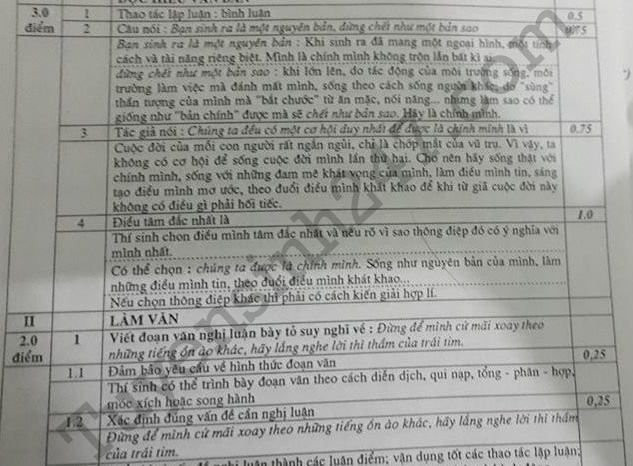 3.0 1 Thao tác lập luận : bình luận 0.5
điểm 2 Câu nói : Bạn sinh ra là một nguyên bản, đừng chết như một bản sao
Bạn sinh ra là một nguyên bản : Khi sinh ra đã mang một ngoại hình, một tính
cách và tài năng riêng biệt. Mình là chính mình không trộn lẫn bất kì ai.
đừng chết như một bản sao : khi lớn lên, do tác động của môi trường sống, môi
trường làm việc mà đánh mất mình, sống theo cách sống người khác, do "sùng"
thần tượng của mình mà "bắt chước" từ ăn mặc, nói năng... nhưng làm sao có thể
giống như "bản chính" được mà sẽ chết như bản sao. Hãy là chính mình.
3 Tác giả nói : Chúng ta đều có một cơ hội duy nhất để được là chính mình là vì 0.75
Cuộc đời của mỗi con người rất ngắn ngủi, chỉ là chớp mắt của vũ trụ. Vì vậy, ta
không có cơ hội để sống cuộc đời mình lần thứ hai. Cho nên hãy sống thật với
chính mình, sống với những đam mê khát vọng của mình, làm điều mình tin, sáng
tạo điều mình mơ ước, theo đuổi điều mình khát khao để khi từ giã cuộc đời này
không có điều gì phải hối tiếc.
4 Điều tâm đắc nhất là 1.0
Thí sinh chọn điều mình tâm đắc nhất và nêu rõ vì sao thông điệp đó có ý nghĩa với
mình nhất.
Có thể chọn : chúng ta được là chính mình. Sống như nguyên bản của mình, làm
những điều mình tin, theo đuổi điều mình khát khao...
Nếu chọn thông điệp khác thì phải có cách kiến giải hợp lí.
II LÀM VĂN
2.0 1 Viết đoạn văn nghị luận bày tỏ suy nghĩ về : Đừng để mình cứ mãi xoay theo
điểm những tiếng ồn ào khác, hãy lắng nghe lời thì thầm của trái tim.
1.1 Đảm bảo yêu cầu về hình thức đoạn văn 0,25
Thí sinh có thể trình bày đoạn văn theo cách diễn dịch, qui nạp, tổng - phân - hợp,
móc xích hoặc song hành
1.2 Xác định đúng vấn đề cần nghị luận 0,25
Đừng để mình cứ mãi xoay theo những tiếng ồn ào khác, hãy lắng nghe lời thì thầm
của trái tim.
nghị luận thành các luận điểm; vận dụng tốt các thao tác lập luận;